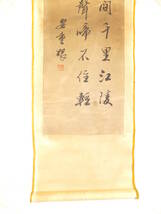 間千里江陵
聲啼不住輕
安重根